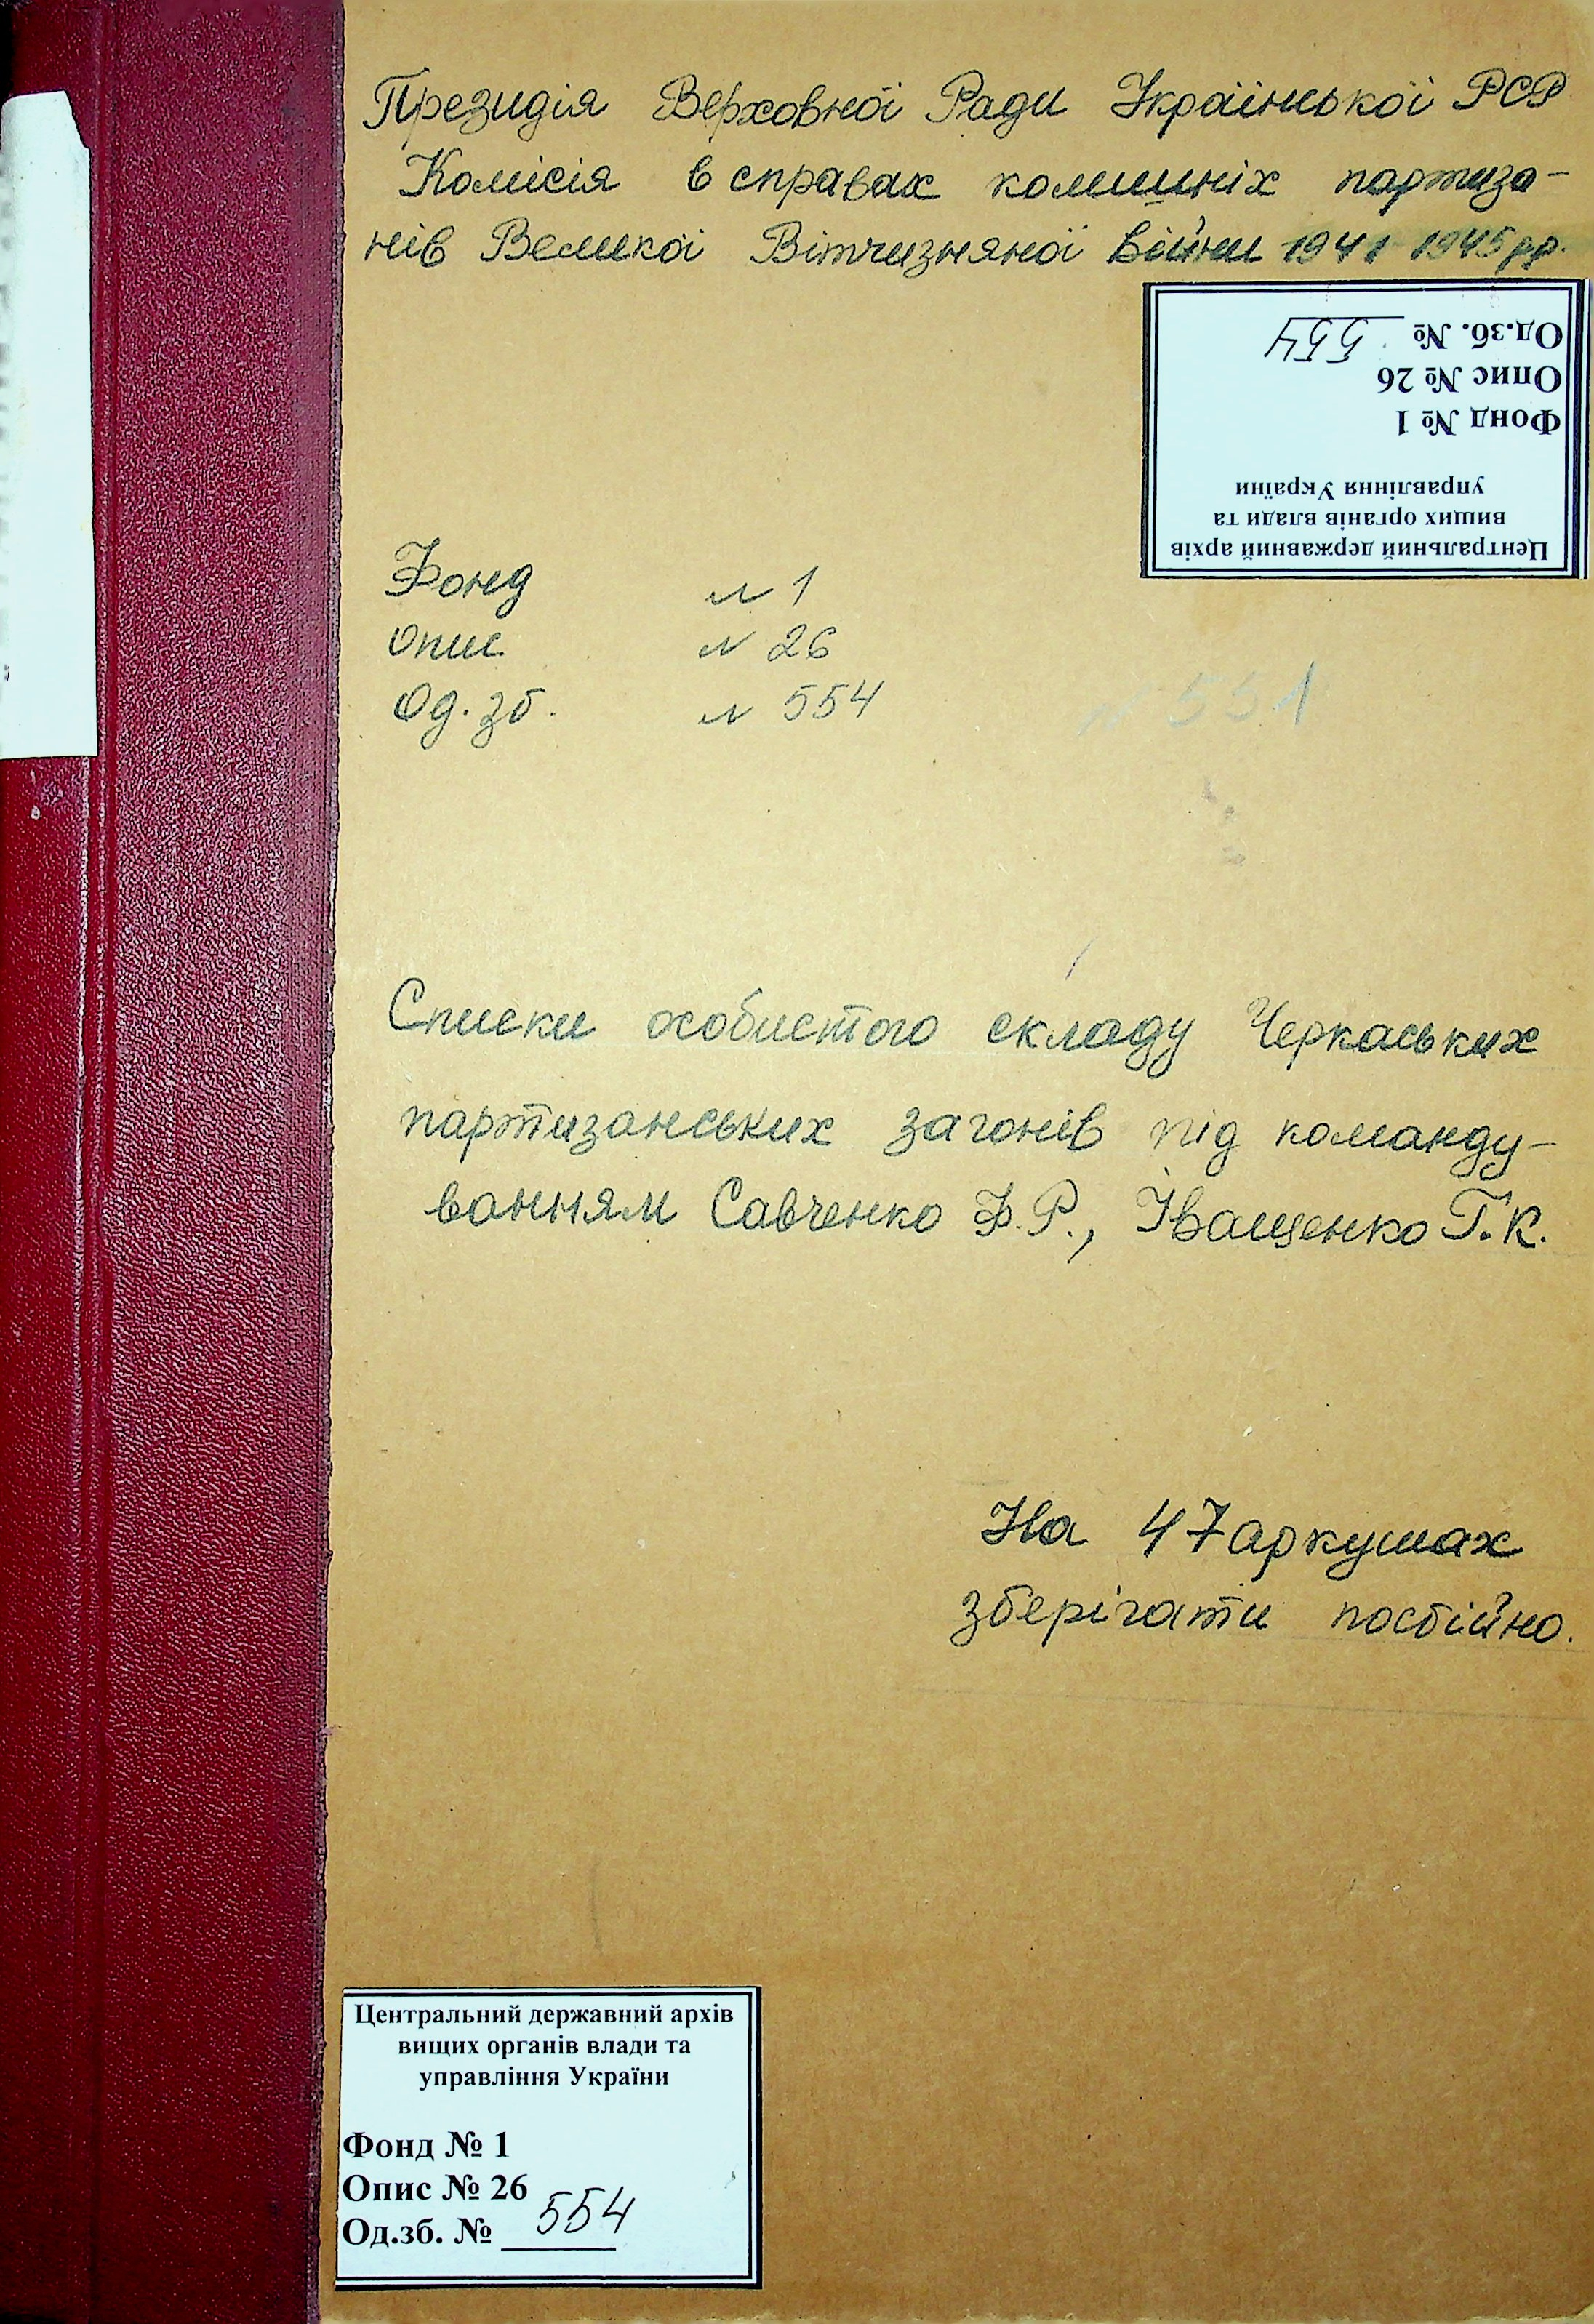 Президія Верховної Ради Української РСР
Комісія в справах колишніх партиза-
нів Великої Вітчизняної війни 1941 1945 рр.
Центральний державний архів
вищих органів влади та
управління України
Фонд № 1
Опис № 26
Од.зб. № 554
Фонд № 1
Опис № 26
Од. зб. № 554
Списки особистого складу Черкаських
партизанських загонів під команду-
ванням Савченко Ф.Р., Іващенко Г.К.
На 47 аркушах
зберігати постійно.
Центральний державний архів
вищих органів влади та
управління України
Фонд № 1
Опис № 26
Од.зб. № 554